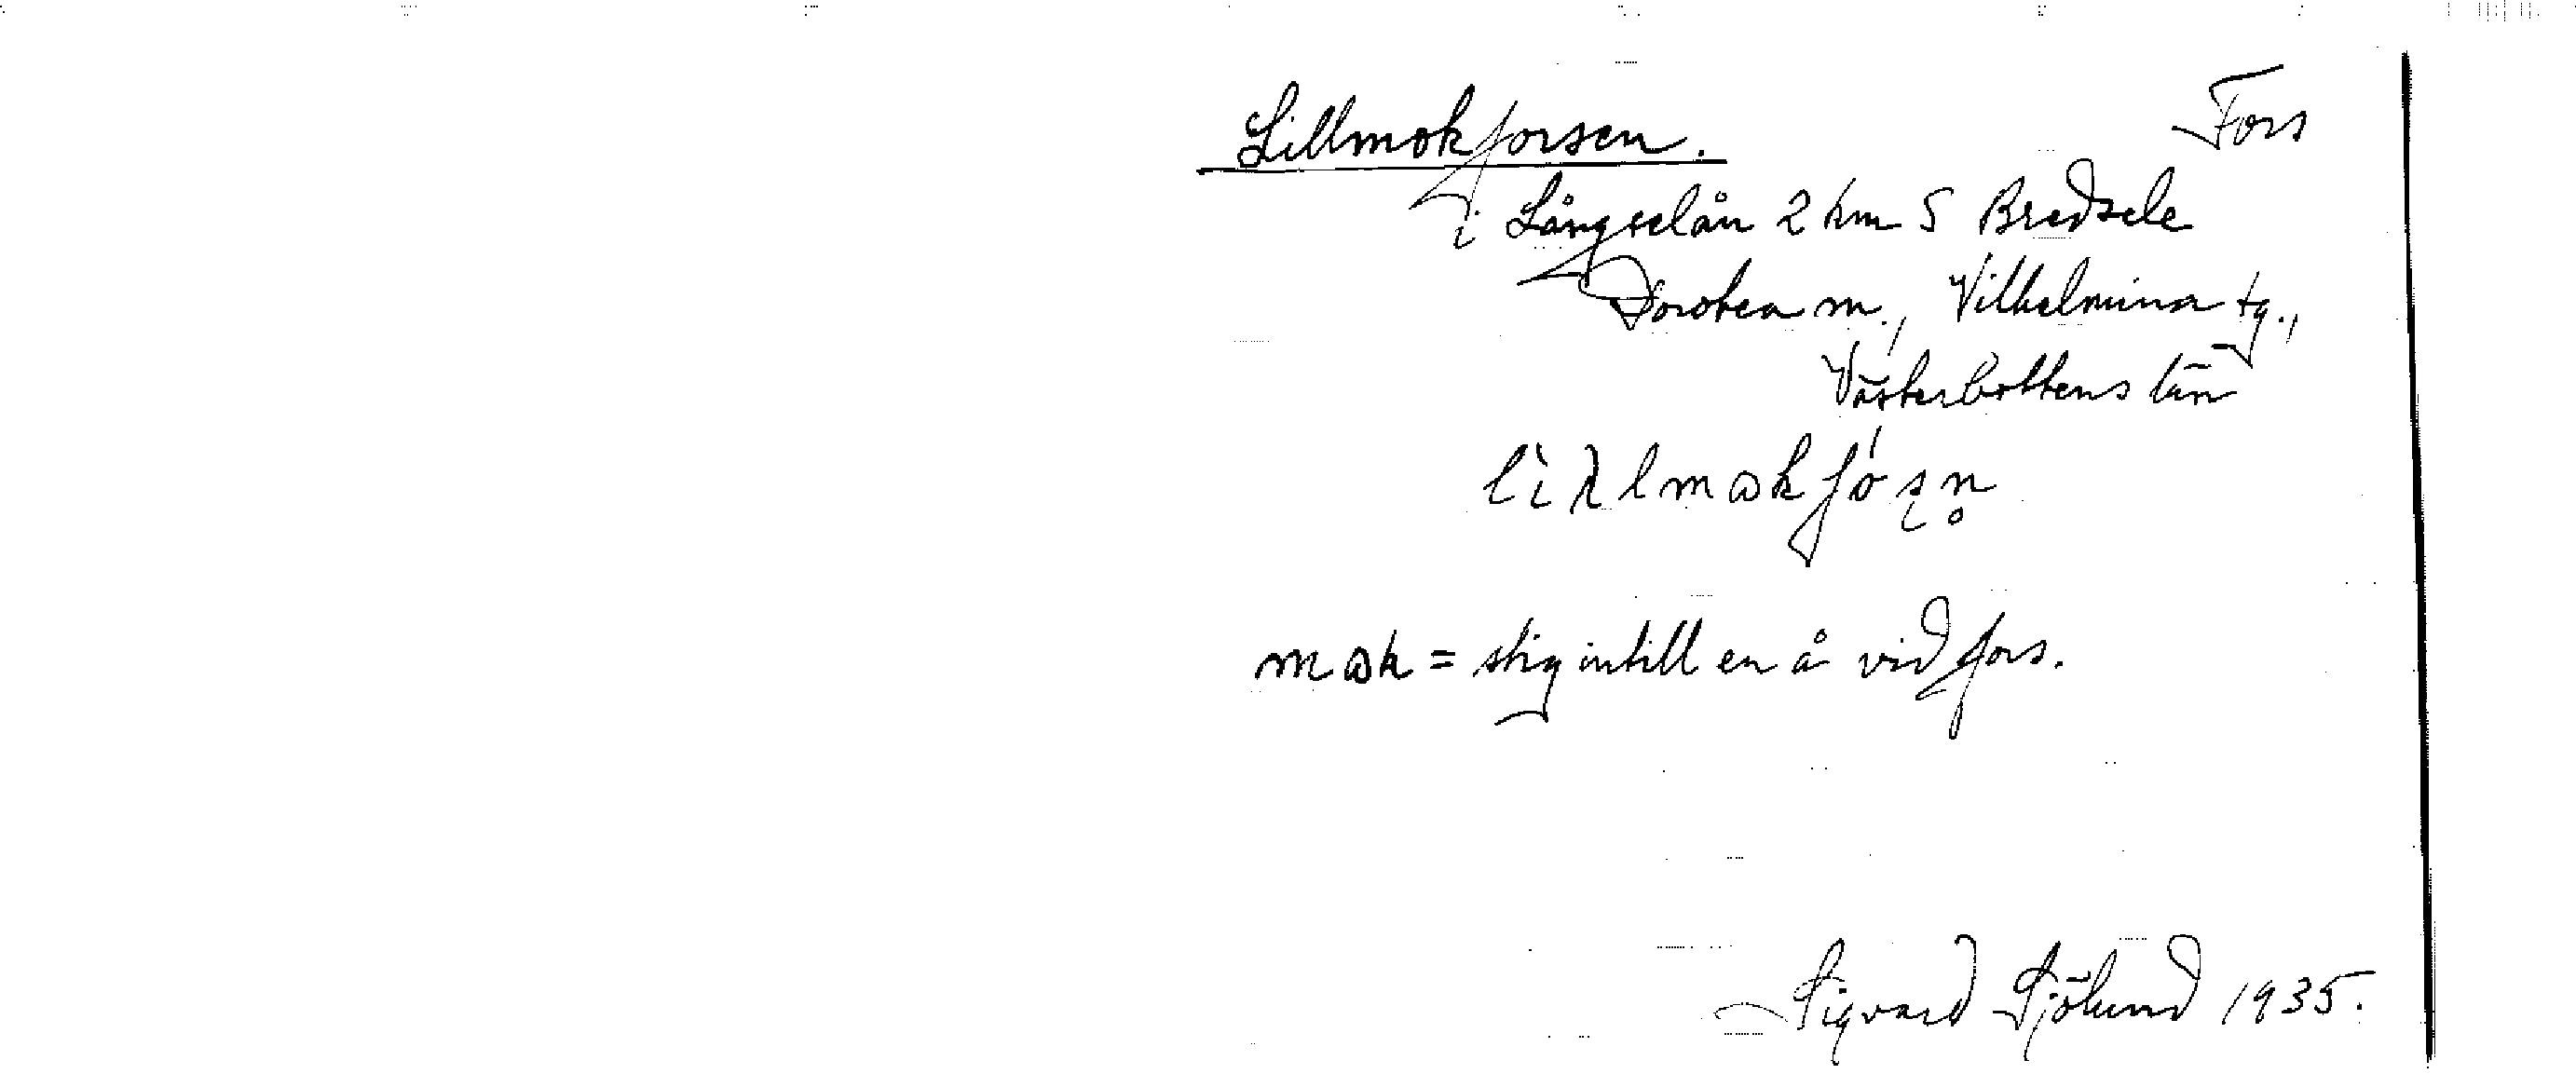 Lillmokforsen. Fors
i Långselån 2 km S Bredsele
Dorotea m., Vilhelmina tg.,
Västerbottens län
mɷk = stig intill en å vid fors.
Sigvard Sjölund 1935.